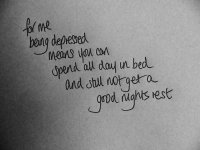 for me
being depressed
means you can
spend all day in bed
and still not get a
good nights rest